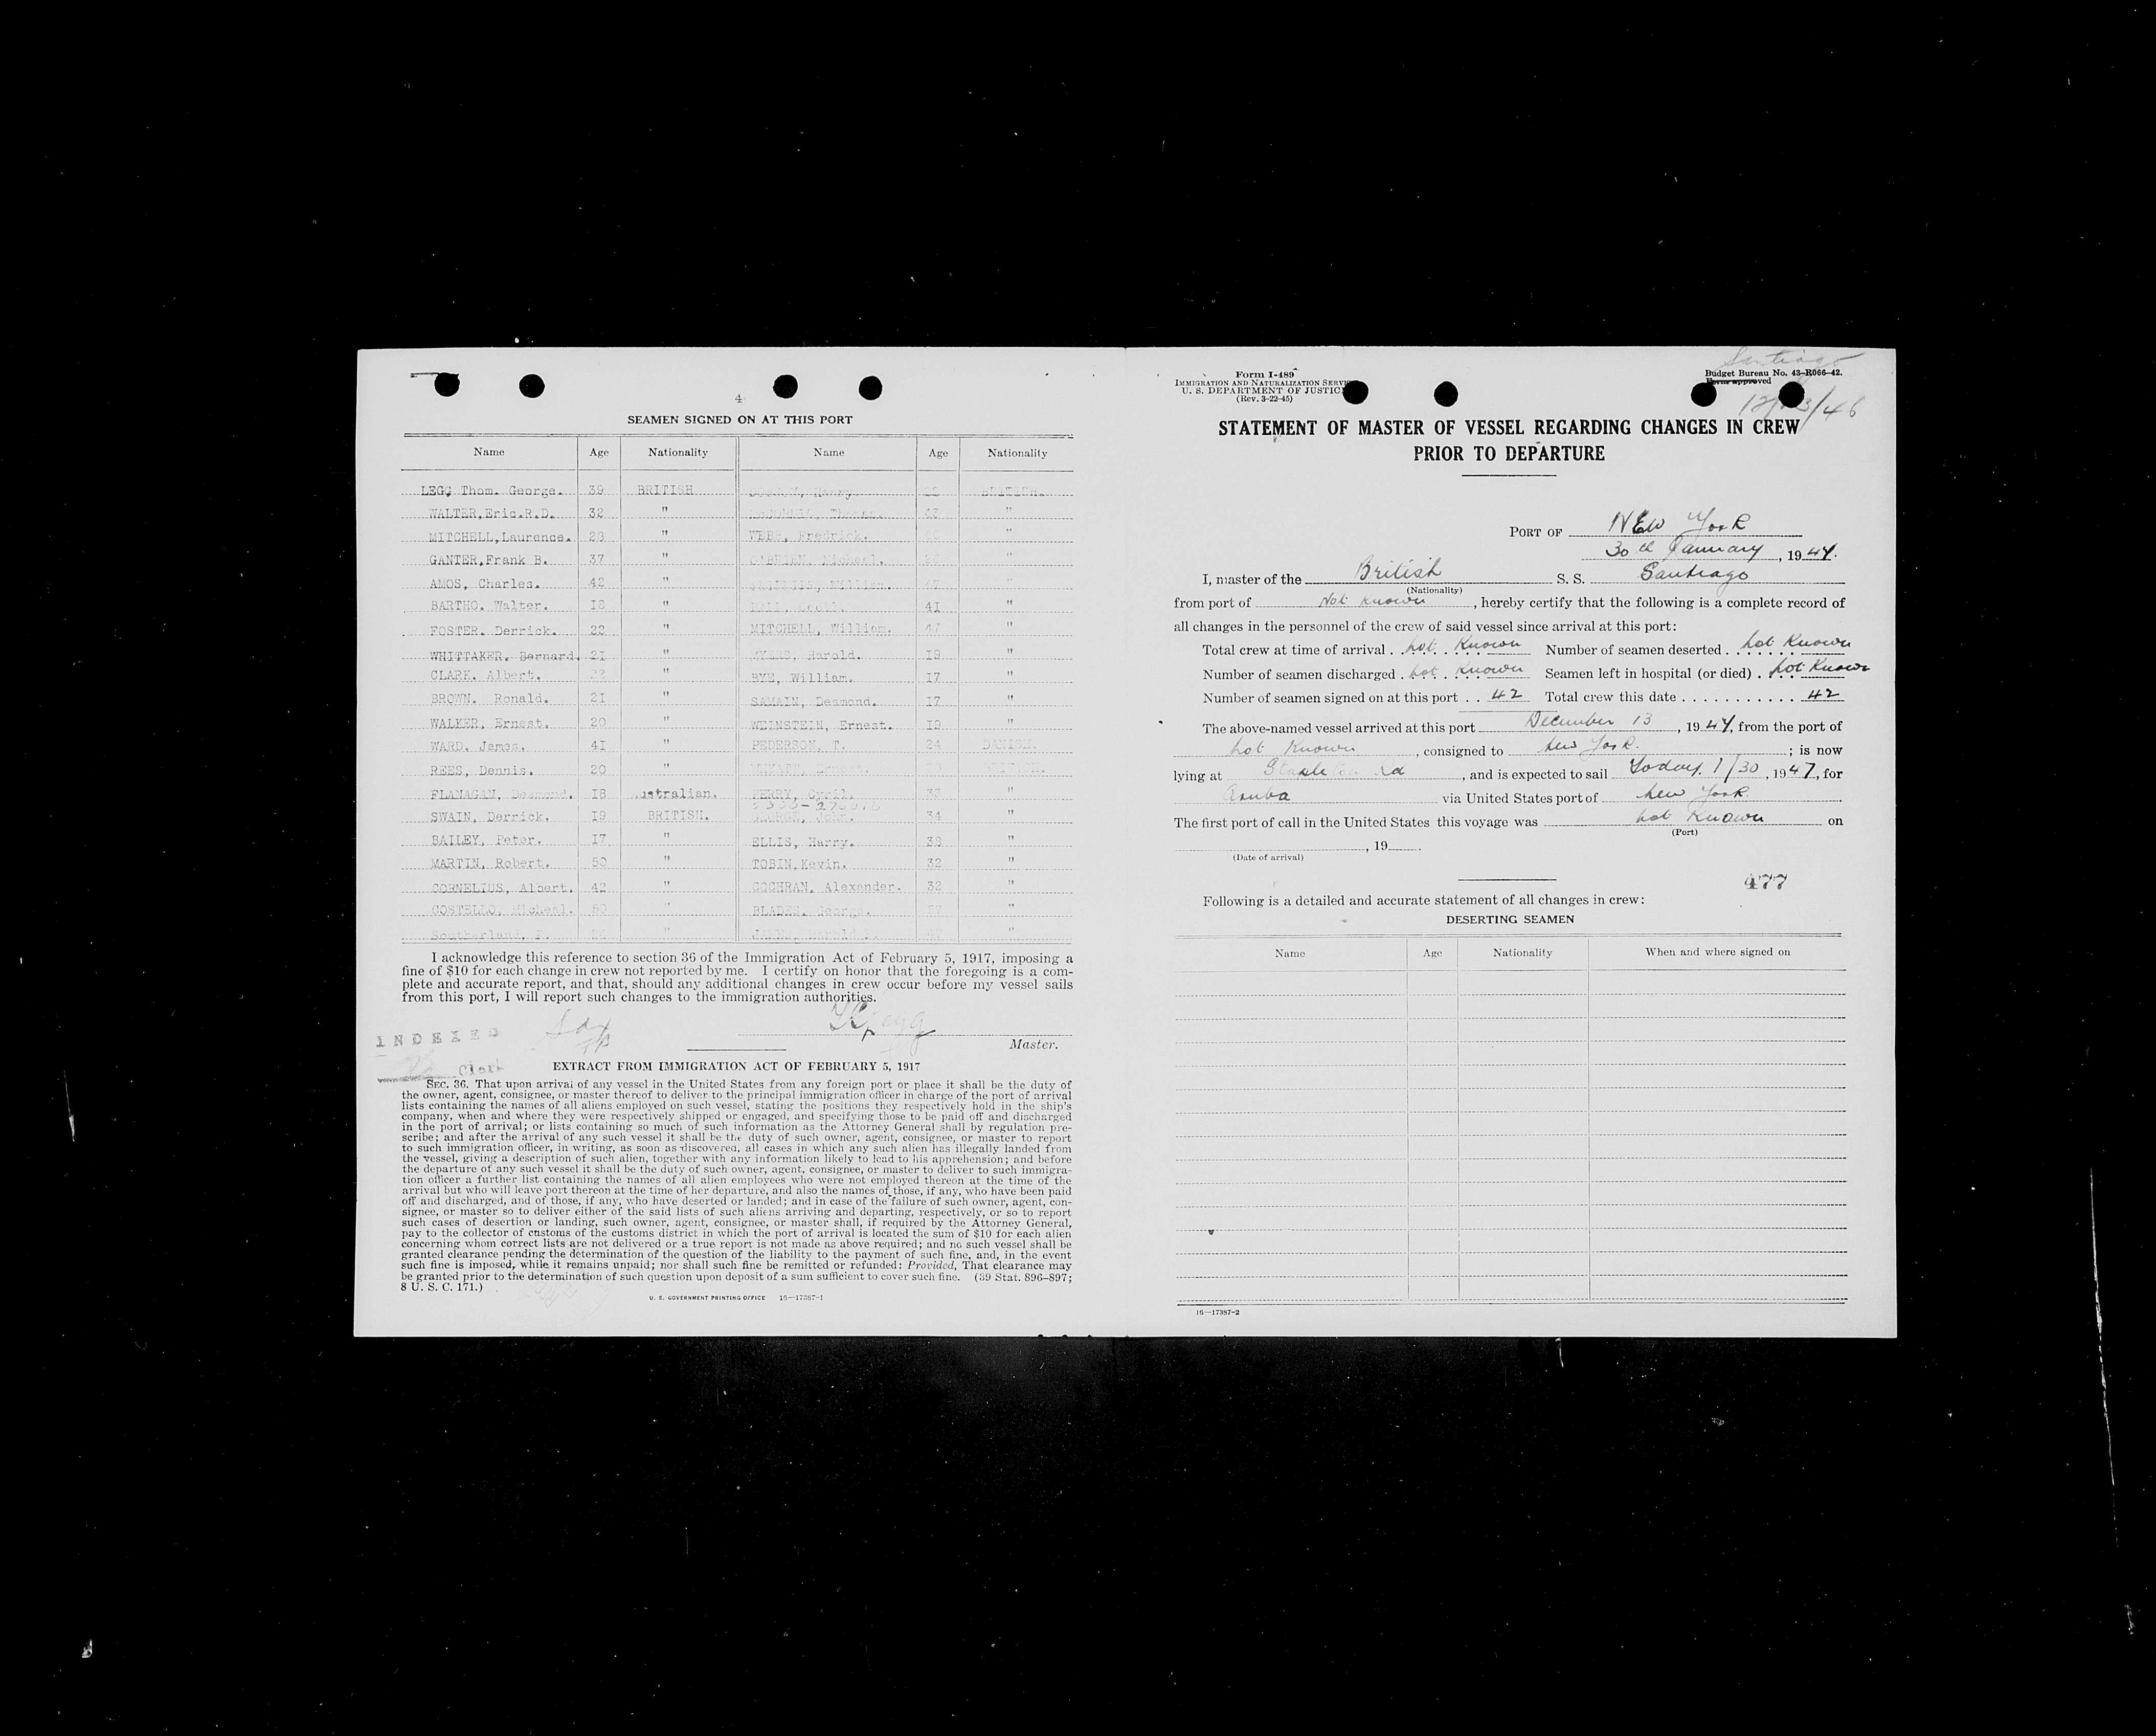 4
SEAMEN SIGNED ON AT THIS PORT
Name Age Nationality Name Age Nationality
LEGG Thom. George. 39 BRITISH
WALTER,Eric.R.D. 32 " 43 "
MITCHELL,Laurence. 28 " WEBB, Fredrick. "
GANTER,Frank B. 37 " O'BRIEN, Micheal. "
AMOS, Charles. 42 " William. "
BARTHO. Walter. 18 " 41 "
FOSTER. Derrick. 22 " MITCHELL, William. 47 "
WHITTAKER. Bernard. 21 " Harold. 19 "
CLARK. Albert. " BYE, William. 17 "
BROWN. Ronald. 21 " SAMAIN, Desmond. 17 "
WALKER, Ernest. 20 " WEINSTEIN, Ernest. 19 "
WARD. James. 41 " PEDERSON, T. 24 DANISH.
REES, Dennis. 20 "
FLANAGAN, Desmond. 18 ustralian. PERRY, Cyril. 33 "
SWAIN, Derrick. 19 BRITISH. GEORGE, John. 34 "
BAILEY, Peter. 17 " ELLIS, Harry. 38 "
MARTIN, Robert. 50 " TOBIN,Kevin. 32 "
CORNELIUS, Albert. 42 " COCHRAN, Alexander. 32 "
COSTELLO, Micheal. 50 " BLADES, George. "
Southerland, F. " "
I acknowledge this reference to section 36 of the Immigration Act of February 5, 1917, imposing a
fine of $10 for each change in crew not reported by me. I certify on honor that the foregoing is a com-
plete and accurate report, and that, should any additional changes in crew occur before my vessel sails
from this port, I will report such changes to the immigration authorities.
INDEXED
Master.
Clerk
EXTRACT FROM IMMIGRATION ACT OF FEBRUARY 5, 1917
SEC. 36. That upon arrival of any vessel in the United States from any foreign port or place it shall be the duty of
the owner, agent, consignee, or master thereof to deliver to the principal immigration officer in charge of the port of arrival
lists containing the names of all aliens employed on such vessel, stating the positions they respectively hold in the ship's
company, when and where they were respectively shipped or engaged, and specifying those to be paid off and discharged
in the port of arrival; or lists containing so much of such information as the Attorney General shall by regulation pre-
scribe; and after the arrival of any such vessel it shall be the duty of such owner, agent, consignee, or master to report
to such immigration officer, in writing, as soon as discovered, all cases in which any such alien has illegally landed from
the vessel, giving a description of such alien, together with any information likely to lead to his apprehension; and before
the departure of any such vessel it shall be the duty of such owner, agent, consignee, or master to deliver to such immigra-
tion officer a further list containing the names of all alien employees who were not employed thereon at the time of the
arrival but who will leave port thereon at the time of her departure, and also the names of those, if any, who have been paid
off and discharged, and of those, if any, who have deserted or landed; and in case of the failure of such owner, agent, con-
signee, or master so to deliver either of the said lists of such aliens arriving and departing, respectively, or so to report
such cases of desertion or landing, such owner, agent, consignee, or master shall, if required by the Attorney General,
pay to the collector of customs of the customs district in which the port of arrival is located the sum of $10 for each alien
concerning whom correct lists are not delivered or a true report is not made as above required; and no such vessel shall be
granted clearance pending the determination of the question of the liability to the payment of such fine, and, in the event
such fine is imposed, while it remains unpaid; nor shall such fine be remitted or refunded: Provided, That clearance may
be granted prior to the determination of such question upon deposit of a sum sufficient to cover such fine. (39 Stat. 896-897;
8 U. S. C. 171.)
U. S. GOVERNMENT PRINTING OFFICE 16—17387-1
Santiago
Form I-489
IMMIGRATION AND NATURALIZATION SERVIC
U. S. DEPARTMENT OF JUSTIC
(Rev. 3-22-45)
Budget Bureau No. 43-R066-42.
Form approved
12/13/46
STATEMENT OF MASTER OF VESSEL REGARDING CHANGES IN CREW
PRIOR TO DEPARTURE
PORT OF NEW York
30th January, 1947.
I, master of the British S. S. Santiago
(Nationality)
from port of Not Known, hereby certify that the following is a complete record of
all changes in the personnel of the crew of said vessel since arrival at this port:
Total crew at time of arrival . not Known Number of seamen deserted . not Known
Number of seamen discharged . not Known Seamen left in hospital (or died) . not Known
Number of seamen signed on at this port . . 42 Total crew this date . . . . . . . . . . . . 42
The above-named vessel arrived at this port December 13, 1947, from the port of
not Known, consigned to New York.; is now
lying at, and is expected to sail Today. 1/30, 1947, for
Aruba via United States port of New York.
The first port of call in the United States this voyage was not Known on
(Port)
, 19 .
(Date of arrival)
477
Following is a detailed and accurate statement of all changes in crew:
DESERTING SEAMEN
Name Age Nationality When and where signed on
16—17387-2